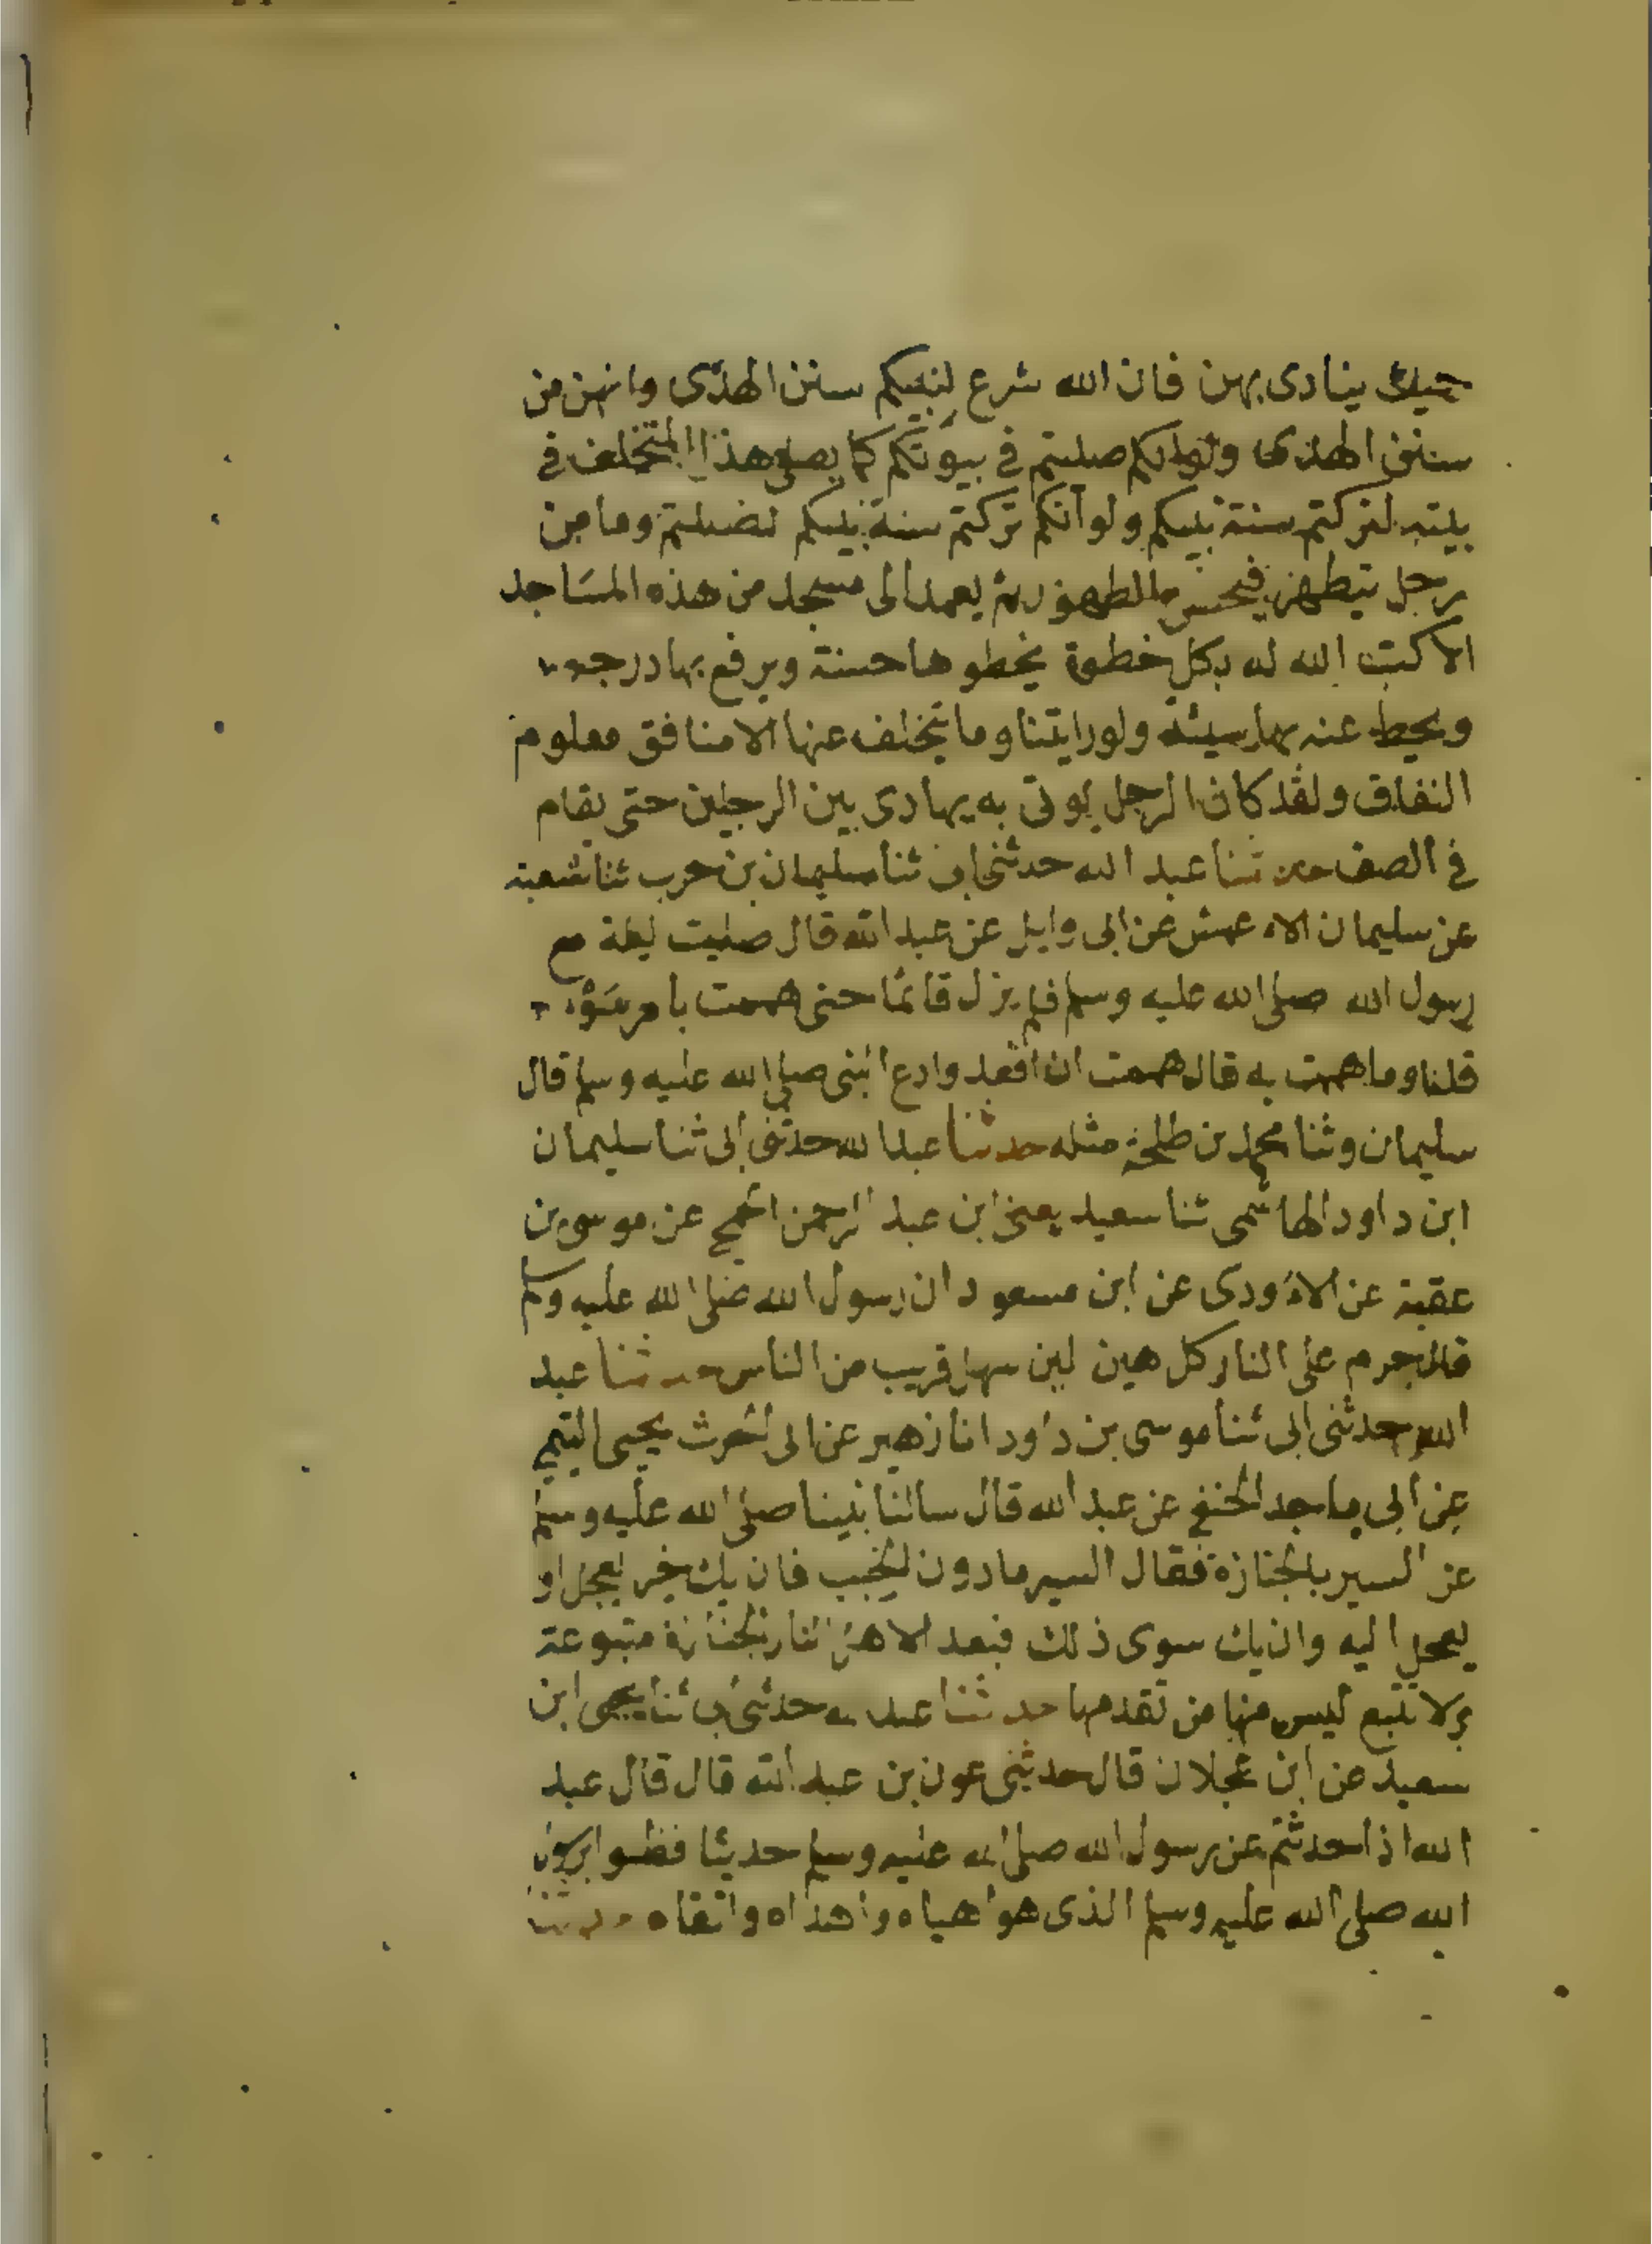 حيث ينادى بهن فان الله شرع لنبيكم سنن الهدى وانهن من
سنن الهدى ولو انكم صليتم في بيوتكم كما يصلى هذا المتخلف في
بيته لتركتم سنة نبيكم ولو أنكم تركتم سنة نبيكم لضللتم وما من
رجل يتطهر فيحسن الطهور ثم يعمد الى مسجد من هذه المساجد
الا كتب الله له بكل خطوة يخطوها حسنة ويرفع بها درجه
ويحط عنه بها سيئة ولو رايتنا وما يتخلف عنها الا منافق معلوم
النفاق ولقد كان الرجل يوتى به يهادى بين الرجلين حتى يقام
في الصف حدثنا عبد الله حدثنى ابى ثنا سليمان بن حرب ثنا شعبة
عن سليمان الاعمش عن ابى وايل عن عبد الله قال صليت ليلة مع
رسول الله صلى الله عليه وسلم فلم يزل قائما حتى هممت بأمر سوء
قلنا وما هممت به قال هممت ان اقعد وادع النبى صلى الله عليه وسلم قال
سليمان وثنا محمد بن طلحة مثله حدثنا عبد الله حدثنى ابى ثنا سليمان
ابن داود الهاشمى ثنا سعيد يعنى ابن عبد الرحمن الجمحى عن موسى بن
عقبة عن الاودى عن ابن مسعود ان رسول الله صلى الله عليه وسلم
قال حرم على النار كل هين لين سهل قريب من الناس حدثنا عبد
الله حدثنى ابى ثنا موسى بن داود انا زهير عن ابى الحرث يحيى التيمى
عن ابى ماجد الحنفى عن عبد الله قال سالنا نبينا صلى الله عليه وسلم
عن السير بالجنازة فقال السير ما دون الخبب فان يك خير يعجل او
يعجل اليه وان يك سوى ذلك فبعد الاهل النار الجنازة متبوعة
ولا تتبع ليس منها من تقدمها حدثنا عبد الله حدثنى ابى ثنا يحيى ابن
سعيد عن ابن عجلان قال حدثنى عون بن عبد الله قال قال عبد
الله اذا حدثتم عن رسول الله صلى الله عليه وسلم حديثا فظنوا برسول
الله صلى الله عليه وسلم الذى هو اهياه واهداه واتقاه حدثنا